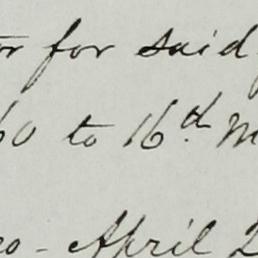 or for said
60 to 16th M
ro - April 2